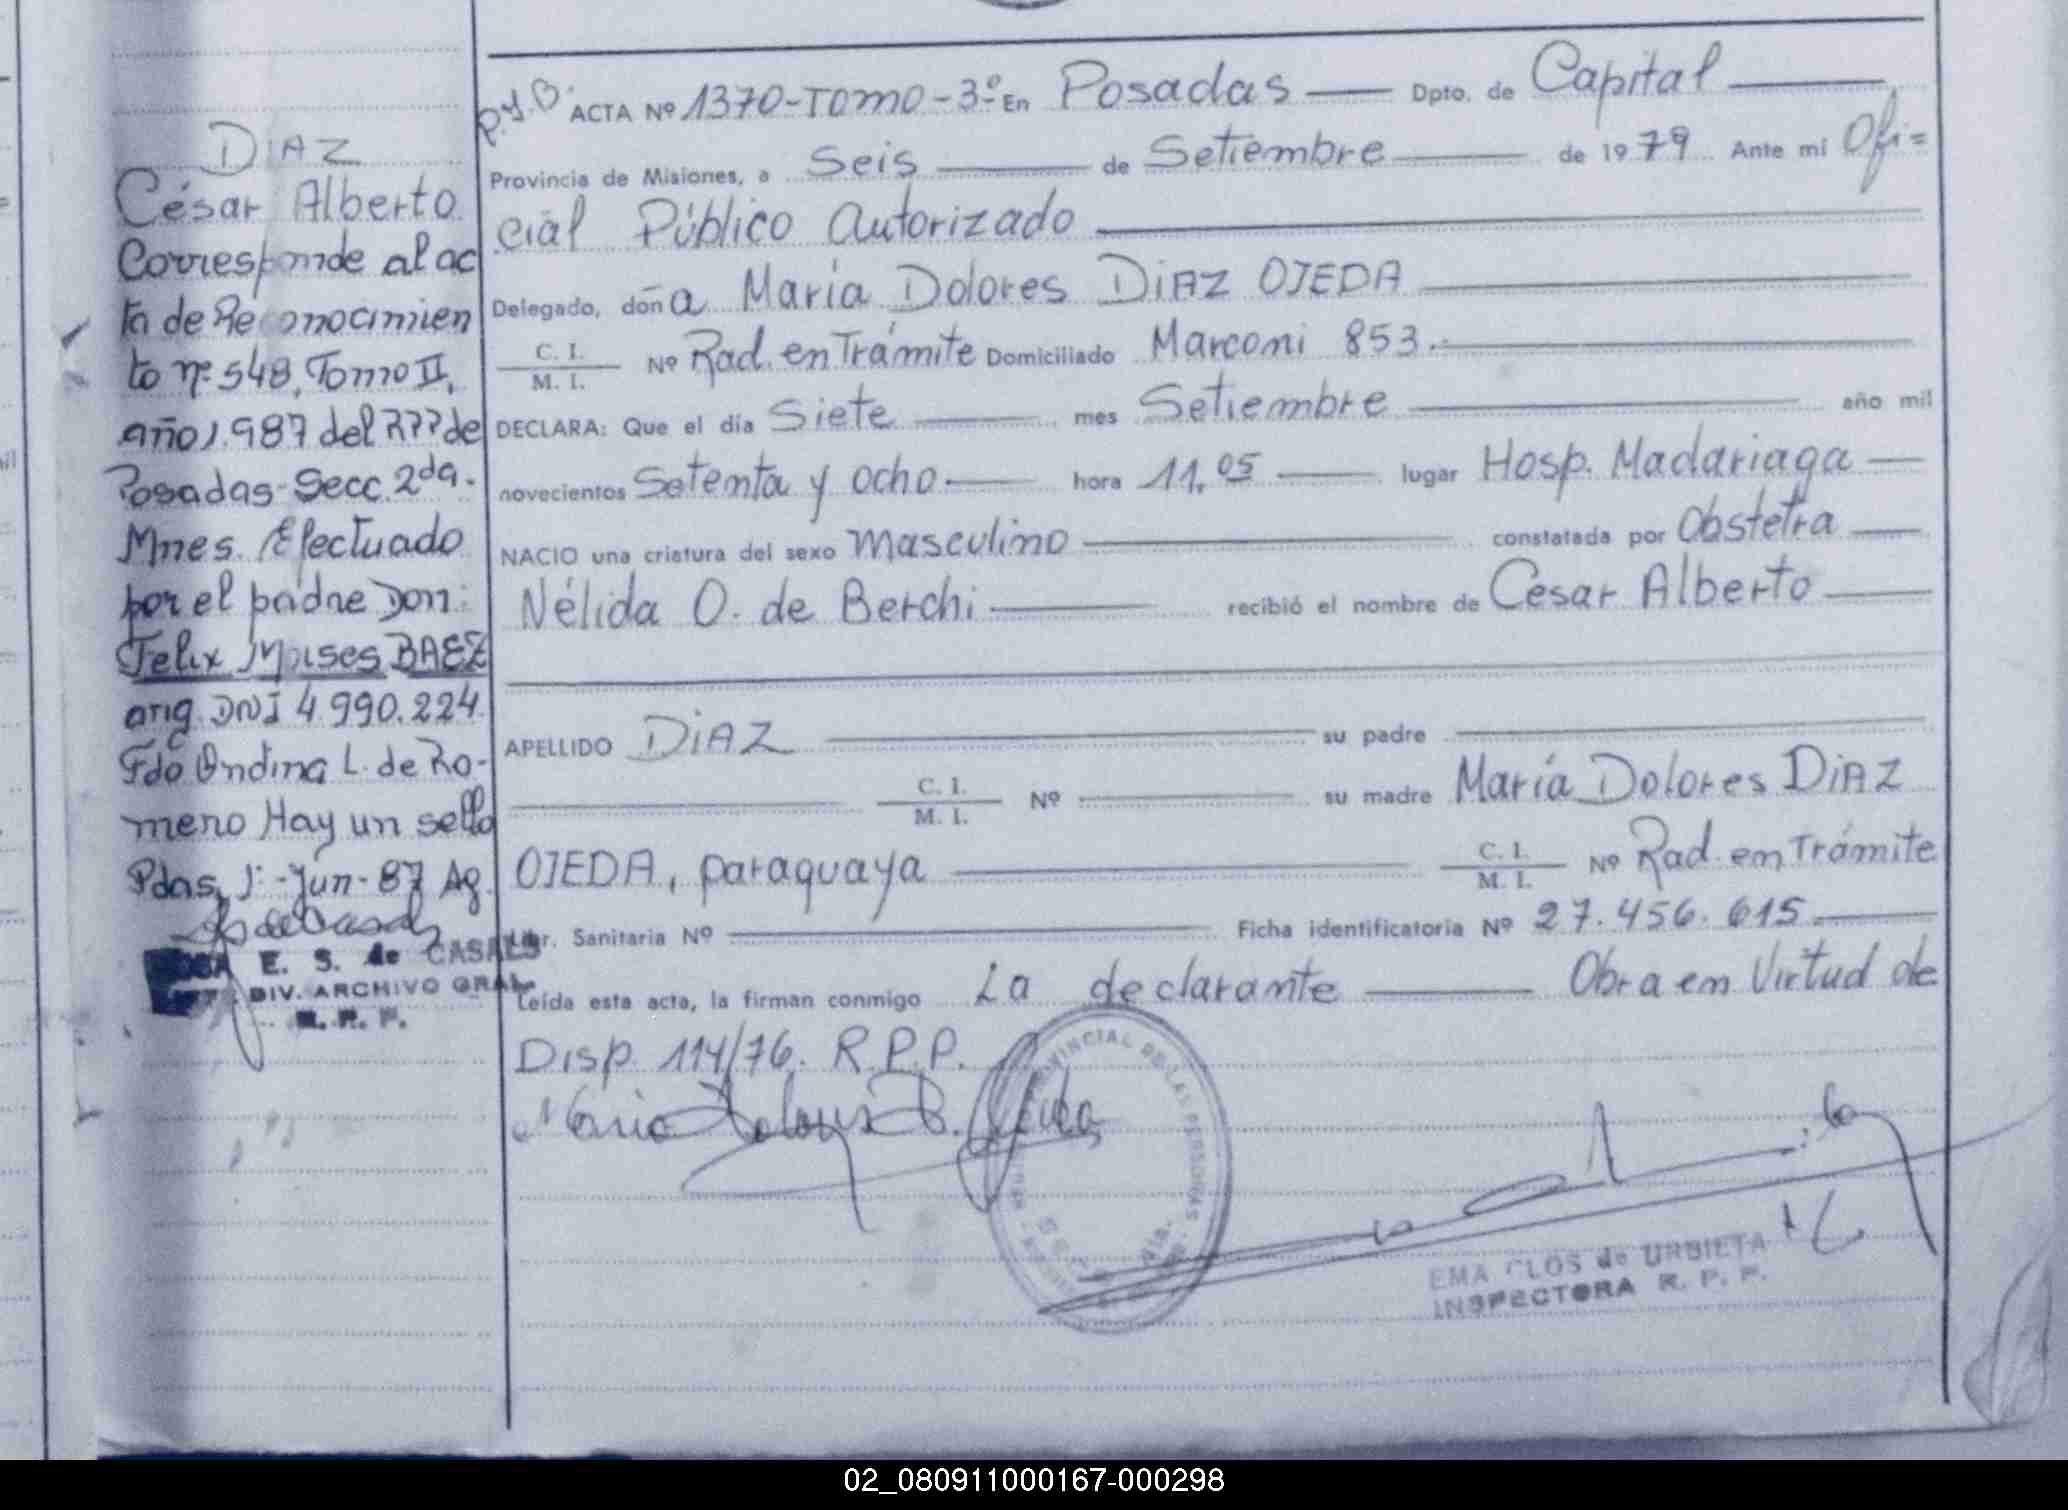 DIAZ
César Alberto
Corresponde al ac
ta de Reconocimien
to nº 548, Tomo II,
año 1.987 del RPP de
Posadas Secc. 2da.
Mnes. Efectuado
por el padre Don:
Felix Moises BAEZ
arig. DNI 4.990.224
Fdo Ondina L. de Ro-
mero Hay un sello
Pdas, 1º-Jun-87 Ag.
E. S. de CASALS
DIV. ARCHIVO GRAL
R. P. P.
ACTA Nº 1370-TOMO-3º- En Posadas Dpto. de Capital
Provincia de Misiones, a Seis de Setiembre de 1979 Ante mi Ofi=
cial Público Autorizado
Delegado, doña María Dolores DIAZ OJEDA
C. I.
M. I. Nº Rad. en Trámite Domiciliado Marconi 853.-
DECLARA: Que el día Siete mes Setiembre año mil
novecientos Setenta y ocho hora 11,05 lugar Hosp. Madariaga
NACIO una criatura del sexo masculino constatada por Obstetra
Nélida O. de Berchi recibió el nombre de César Alberto
APELLIDO DIAZ su padre
C. I.
M. I. Nº su madre María Dolores DIAZ
OJEDA, paraguaya C. I.
M. I. Nº Rad. en Trámite
Libr. Sanitaria Nº Ficha identificatoria Nº 27.456.615
Leída esta acta, la firman conmigo La declarante Obra en Virtud de
Disp. 114/76. R.P.P.
PROVINCIAL DE LAS PERSONAS
EMA CLOS de URBIETA
INSPECTORA R. P. P.
02_080911000167-000298